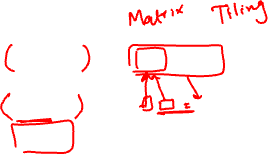 Matrix Tiling